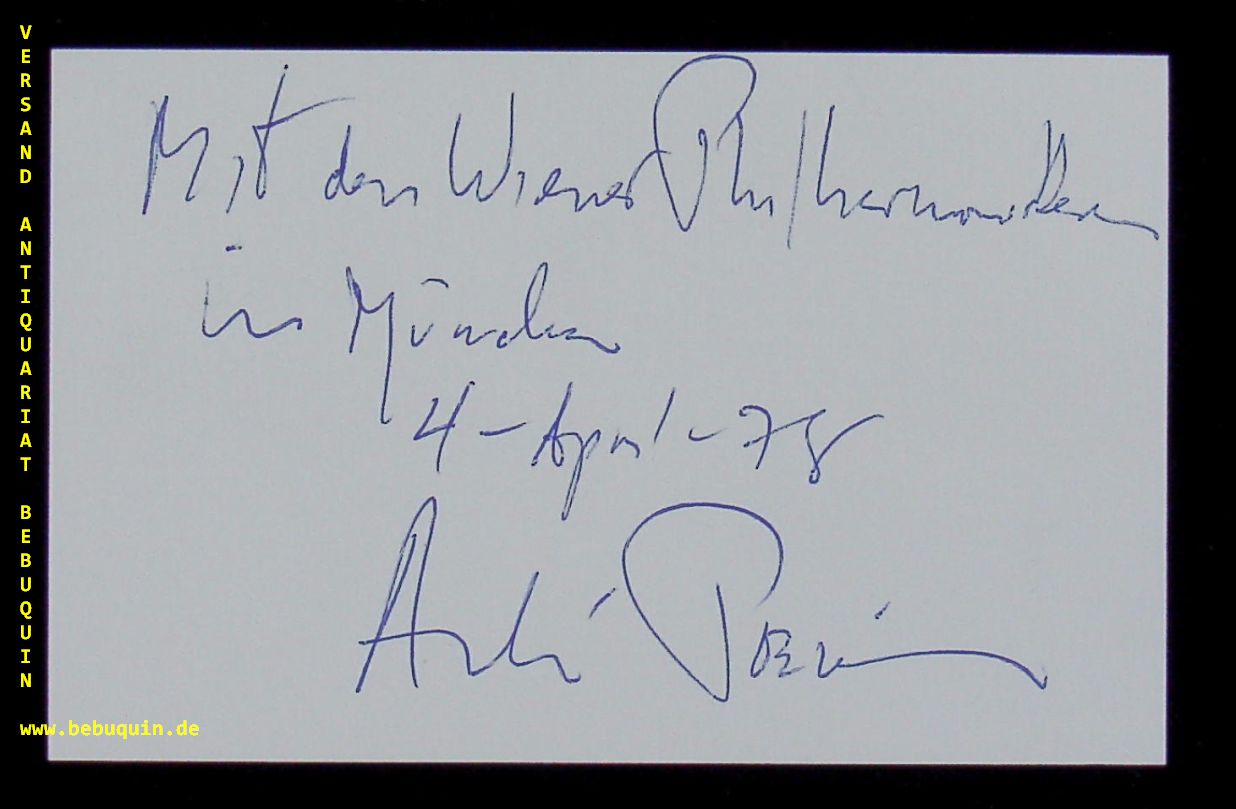 VERSAND ANTIQUARIAT BEBUQUIN
Mit den Wiener Philharmonikern
in München
4-April-78
André Previn
www.bebuquin.de